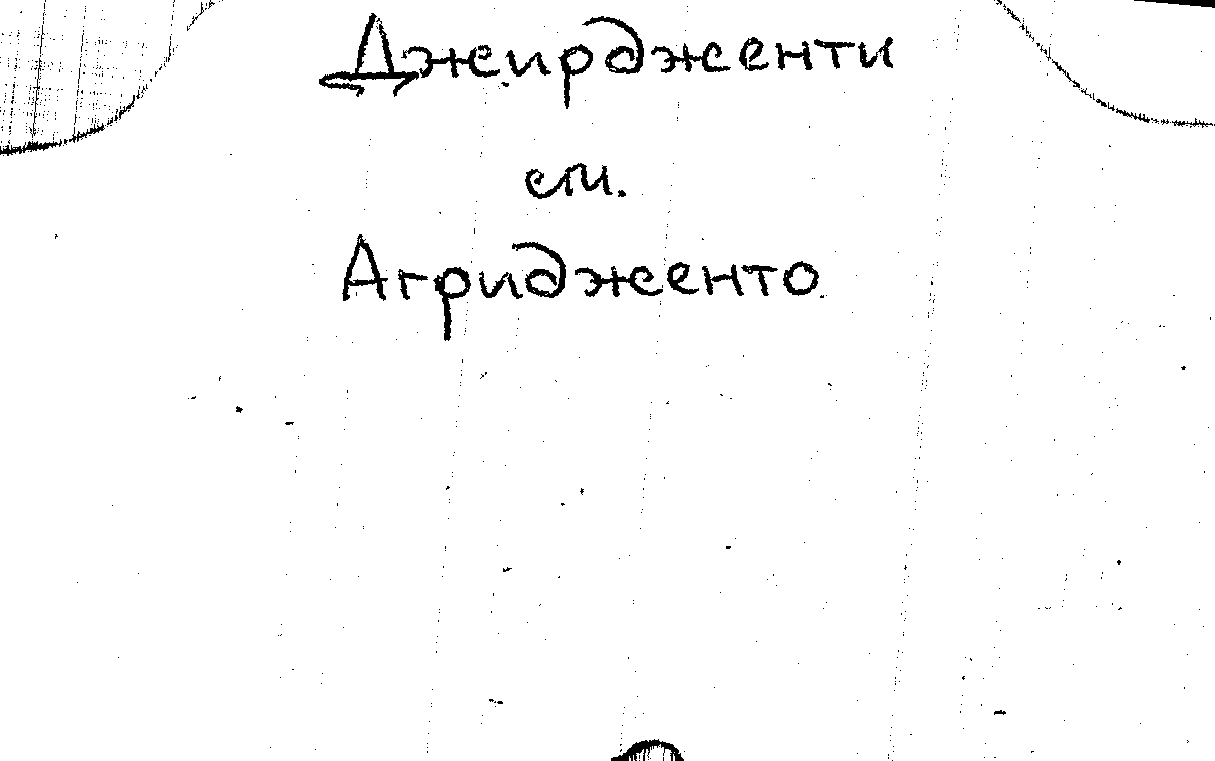 Джирдженти
см.
Агридженто